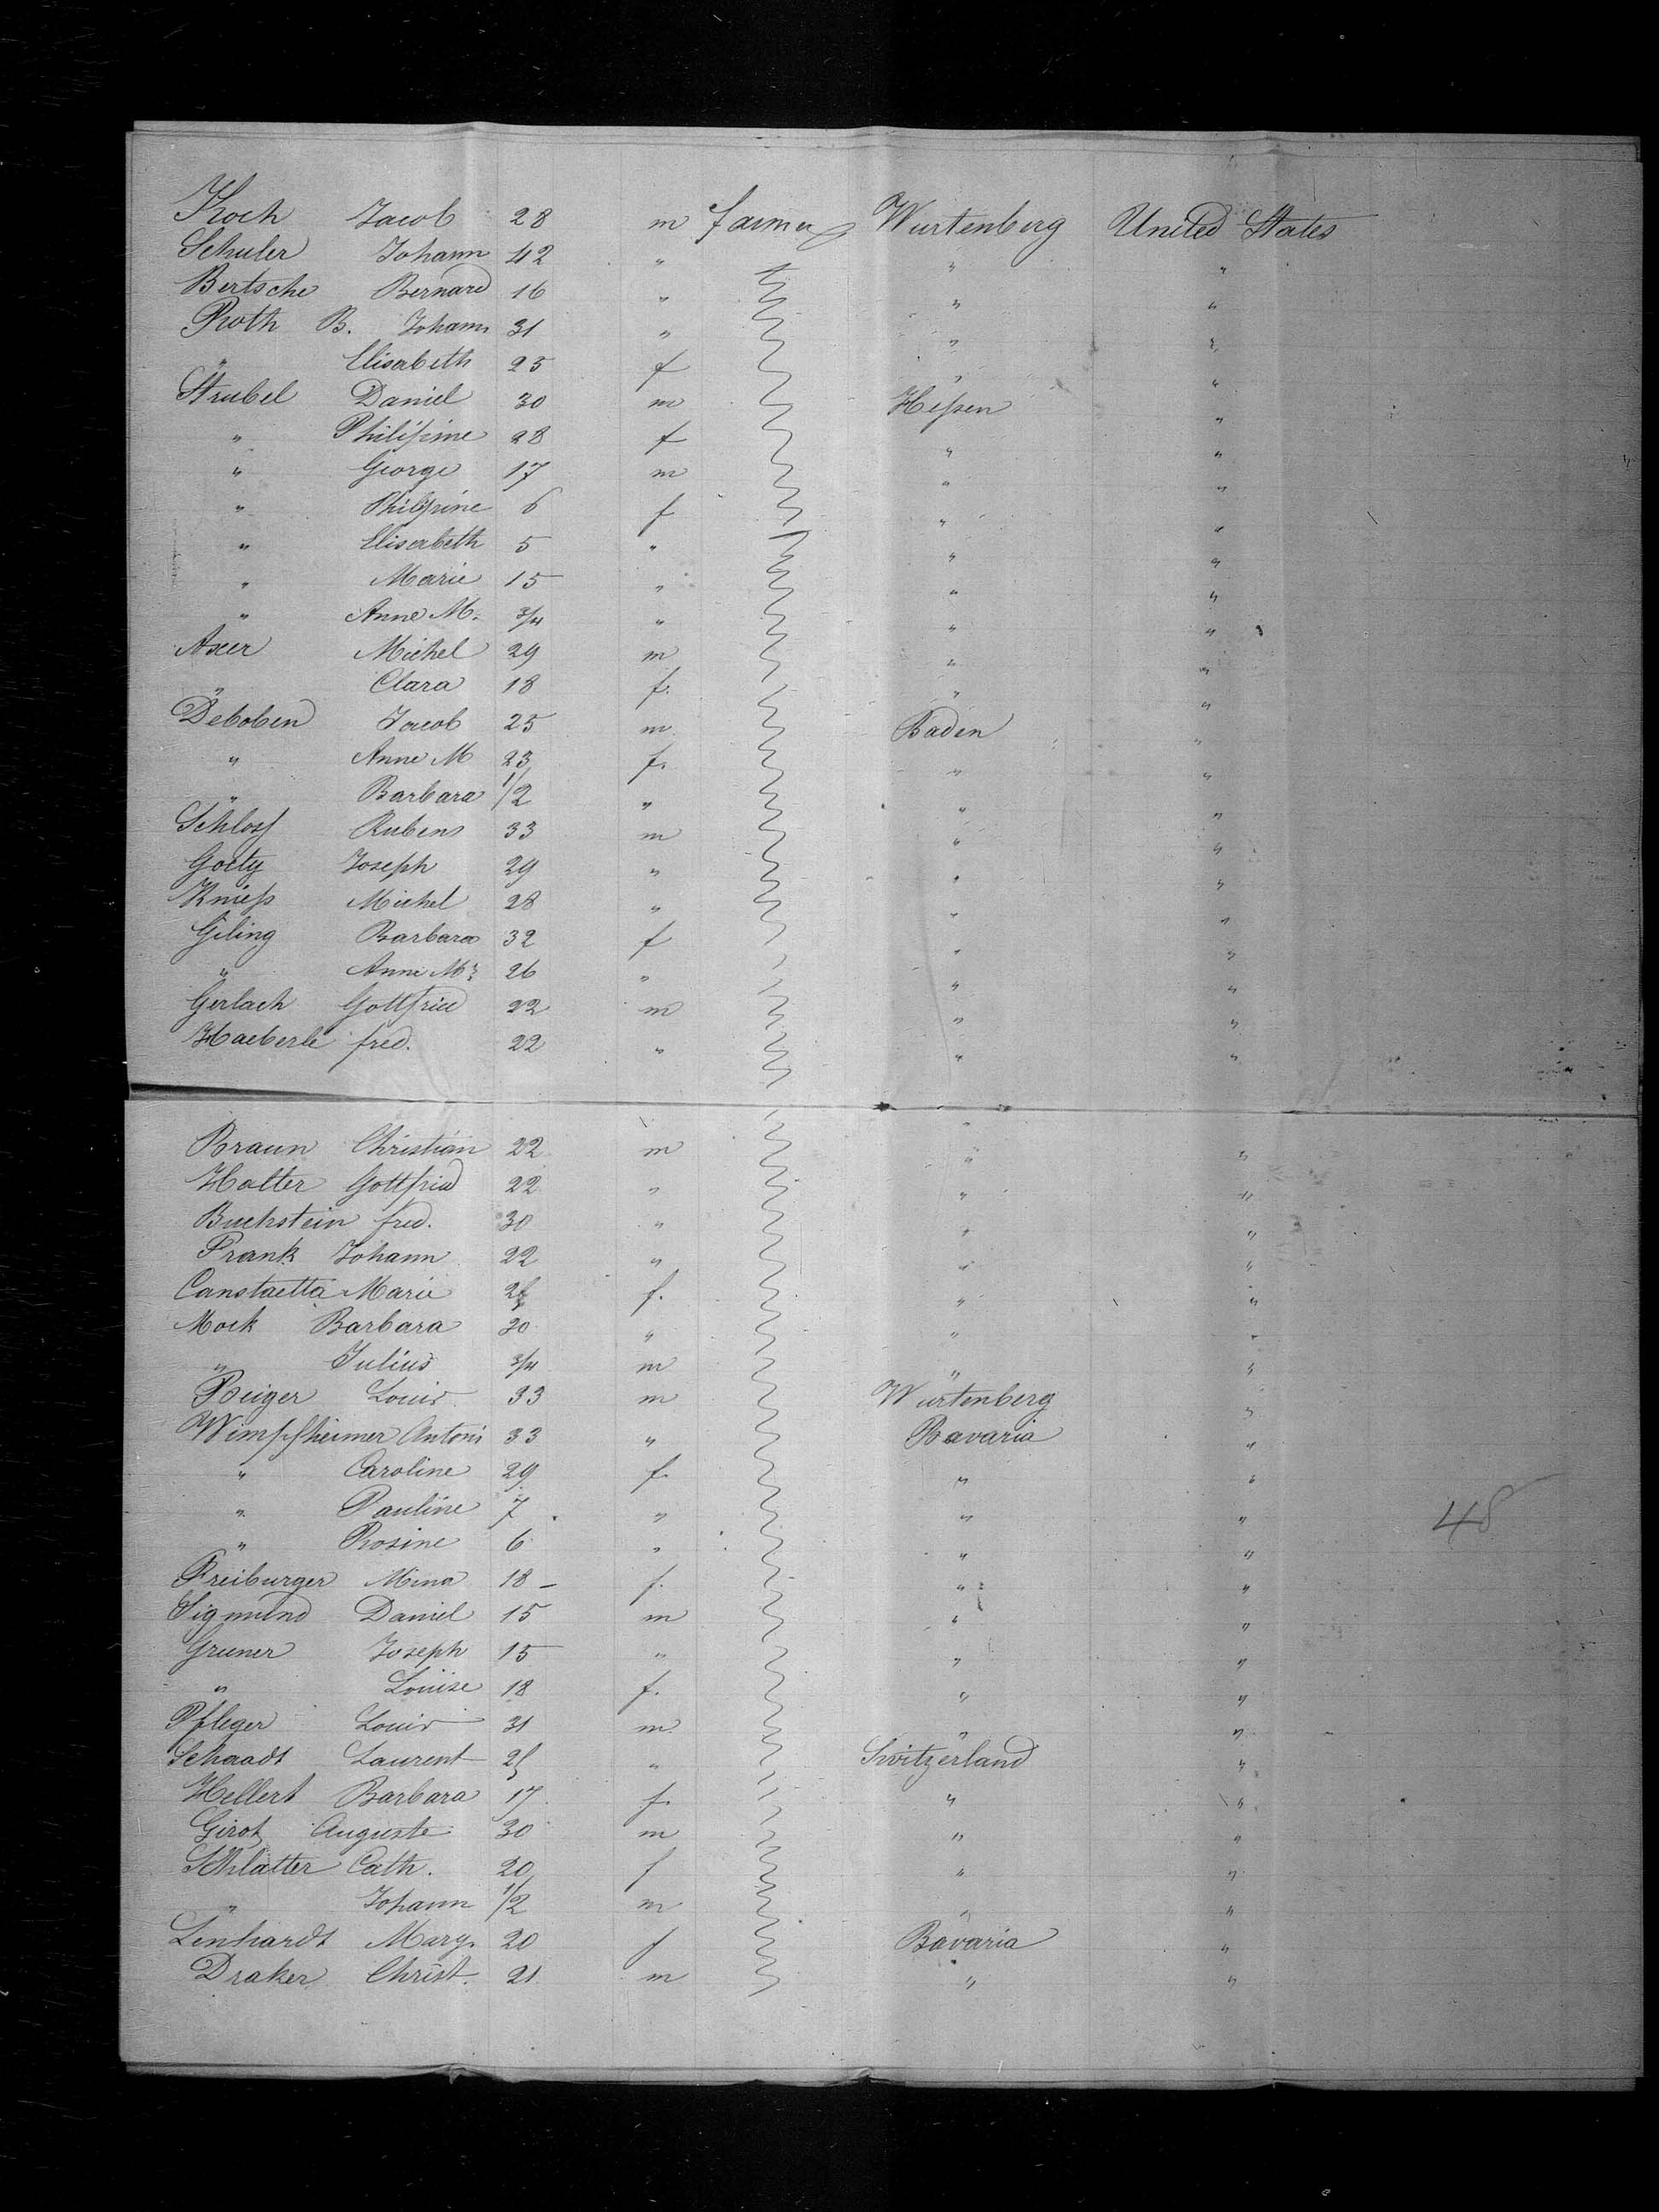 Koch Jacob 28 m farmer Wurtenberg United States
Schuler Johann 42 " " "
Bertsche Bernard 16 " " "
Roth B. Johann 31 " " "
" Elisabeth 25 f " "
Strubel Daniel 30 m Hessen "
" Philipine 28 f " "
" George 17 m " "
" Philipine 6 f " "
" Elisabeth 5 " " "
" Marie 15 " " "
" Anne M. 3/4 " " "
Axer Michel 29 m " "
" Clara 18 f. " "
Deboben Jacob 25 m Baden "
" Anne M 23 f. " "
" Barbara 1/2 " " "
Schloss Rubens 33 m " "
Goetz Joseph 29 " " "
Kniess Michel 28 " " "
Giling Barbara 32 f " "
" Anne M 26 " " "
Gerlach Gottfried 22 m " "
Haeberle fred. 22 " " "
Braun Christian 22 m " "
Halter Gottfried 22 " " "
Buchstein fred. 30 " " "
Frank Johann 22 " " "
Canstaetta Marie f. " "
Mock Barbara 30 " " "
" Julius 3/4 m " "
Reiger Louis 33 m Wurtenberg "
Wimpfheimer Antoni 33 " Bavaria "
" Caroline 29 f. " "
" Pauline 7 " " "
" Rosine 6 " " "
Freiburger Mina 18 f. " "
Sigmund Daniel 15 m " "
Gruner Joseph 15 " " "
" Louise 18 f. " "
Pfleger Louis 31 m " "
Schaadt Laurent " Switzerland "
Hellert Barbara 17 f. " "
Girot Auguste 30 m " "
Schlatter Cath. 20 f " "
" Johann 1/2 m " "
Lenhardt Marg. 20 f Bavaria "
Draker Christ. 21 m " "
48